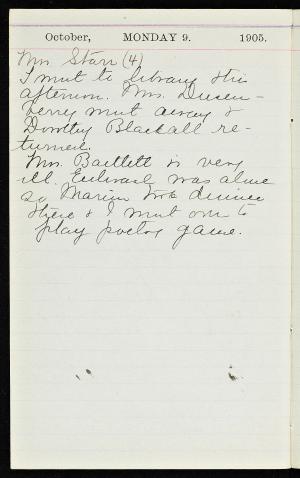 October, MONDAY 9. 1905.
Mrs Starr (4)
I went to library this
afternoon. Mrs. Dusen-
berry went away &
Dorothy Blackall re-
turned.
Mrs. Bartlett is very
ill. Edward was alone
so Marion took dinner
there & I went over to
play poetry game.